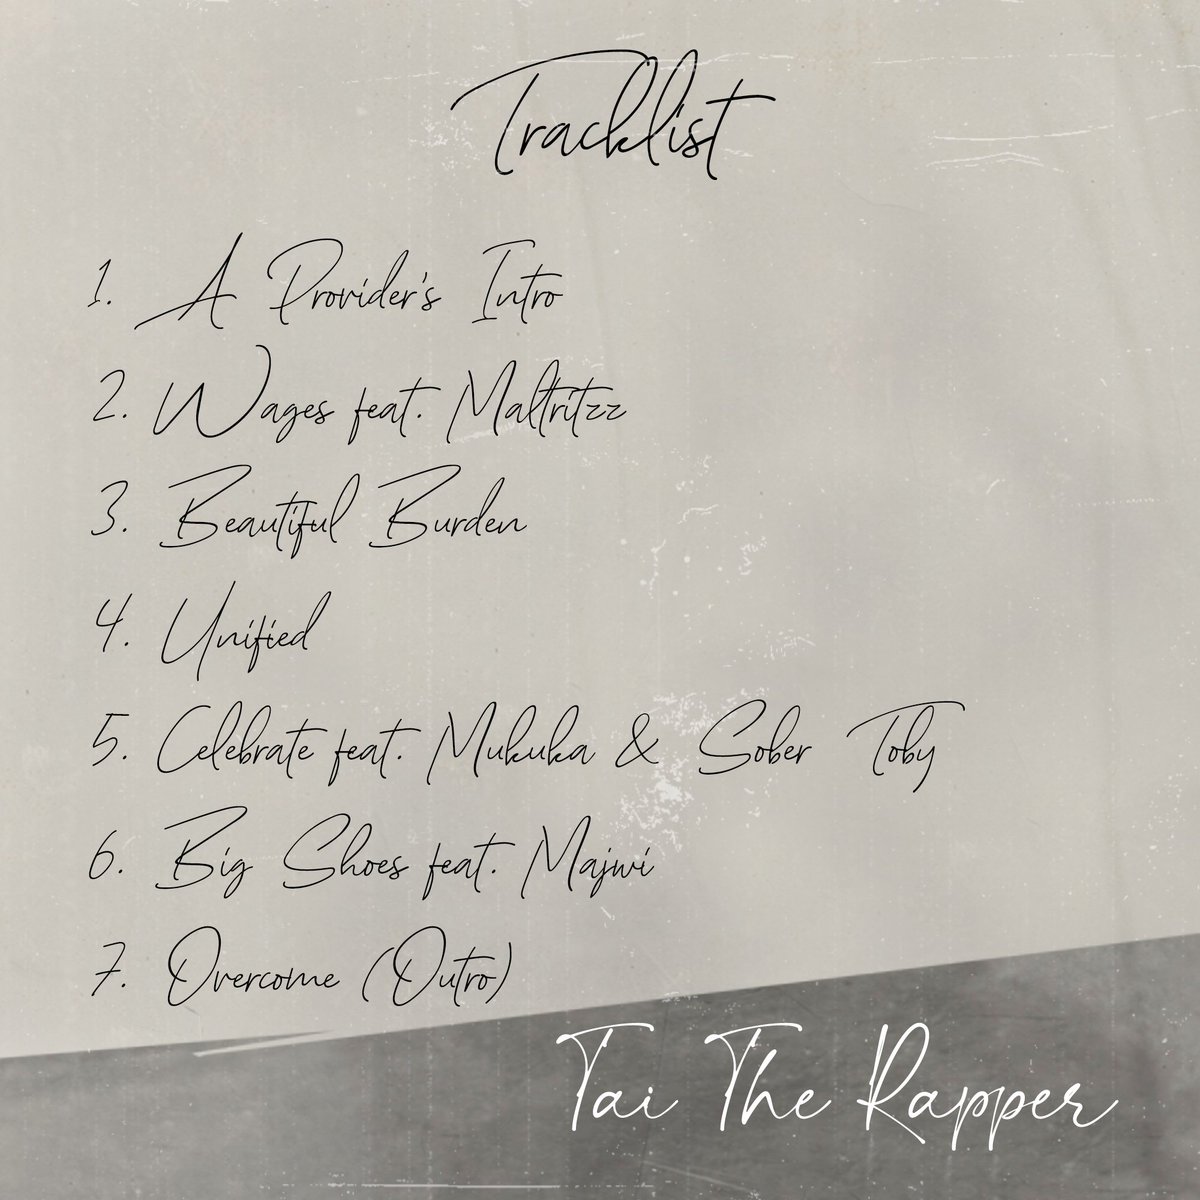 Tracklist
1. A Provider's Intro
2. Wages feat. Maltritzz
3. Beautiful Burden
4. Unified
5. Celebrate feat. Mukuka & Sober Toby
6. Big Shoes feat. Majwi
7. Overcome (Outro)
Tai The Rapper